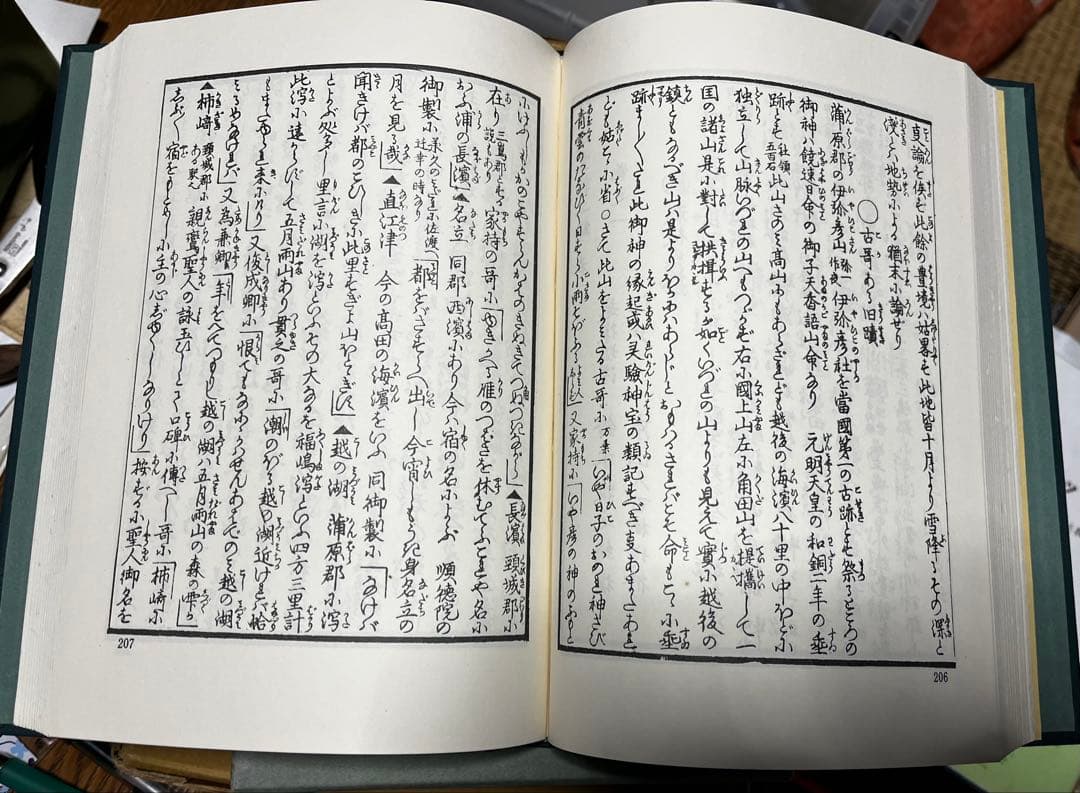 真論を俟ず此餘の豊境は姑畧す此地皆十月より雪降るその深と
浅とは地勢による猶末に論ぜり
○古哥ある旧蹟
蒲原郡の伊弥彦山 伊弥彦社を當國第一の古跡とす祭るところの
御神ハ饒速日命の御子天香語山命なり 元明天皇の和銅二年の垂
跡とす 社領五百石 此山さのミ高山にもあらざれども越後の海濱八十里の中ほどに
独立して山脉いづれの山へもつゞかず右に國上山左に角田山を提攜して一
国の諸山是に對して拱揖するが如くいづれの山よりも見えて實に越後の
鎮ともなるべき山ハ是よりほかハあらじとおもハるさればこそ命もこゝに垂
跡ましましたれ此御神の縁起或ハ灵驗神宝の類記すべき事あまたあれ
ども姑こゝに省○さて此山をよミたる古哥に 万葉 「いや日子のおのれ神さび
青雲のたなびく日すら小雨そぼふる 又家持に「いや彦の神のふもと
にけふしもかのこやすらんかはのきぬきてつぬつきながら」▲長濱 頸城郡に
在り 三嶋郡とする説もあり 家持の哥に「ゆきかへる雁のつばさを休むてふこれや名に
おふ浦の長濱」▲名立 同郡西濱にあり今ハ宿の名によぶ 順徳院の
御製に 承久のみだれに佐渡へ迁幸の時なり 「都をばさすらへ出し今宵しもうき身名立の
月を見る哉」▲直江津 今の高田の海濱をいふ 同御製に「なけば
聞きけば都のこひしきに此里すぎよ山ほとゝぎす」▲越の湖 蒲原郡に潟
とよぶ処多し里言に湖を潟といふその大なるを福嶋潟といふ四方三里計
此潟に遠からずして五月雨山あり貫之の哥に「潮のぼる越の湖近ければ蛤
もまたゆられ来にけり」又俊成卿に「恨てもなにゝかハせんあはでのミ越の湖
みるめなければ」又為兼卿「年をへてつもりし越の湖ハ五月雨山の森の雫か」
▲柿崎 頸城郡にある駅也 親鸞聖人の詠玉ひしとて口碑に傳へし哥に「柿崎に
しぶしぶ宿をもとめしに主の心じゅくしなりけり」按ずるに聖人御名を
206
207